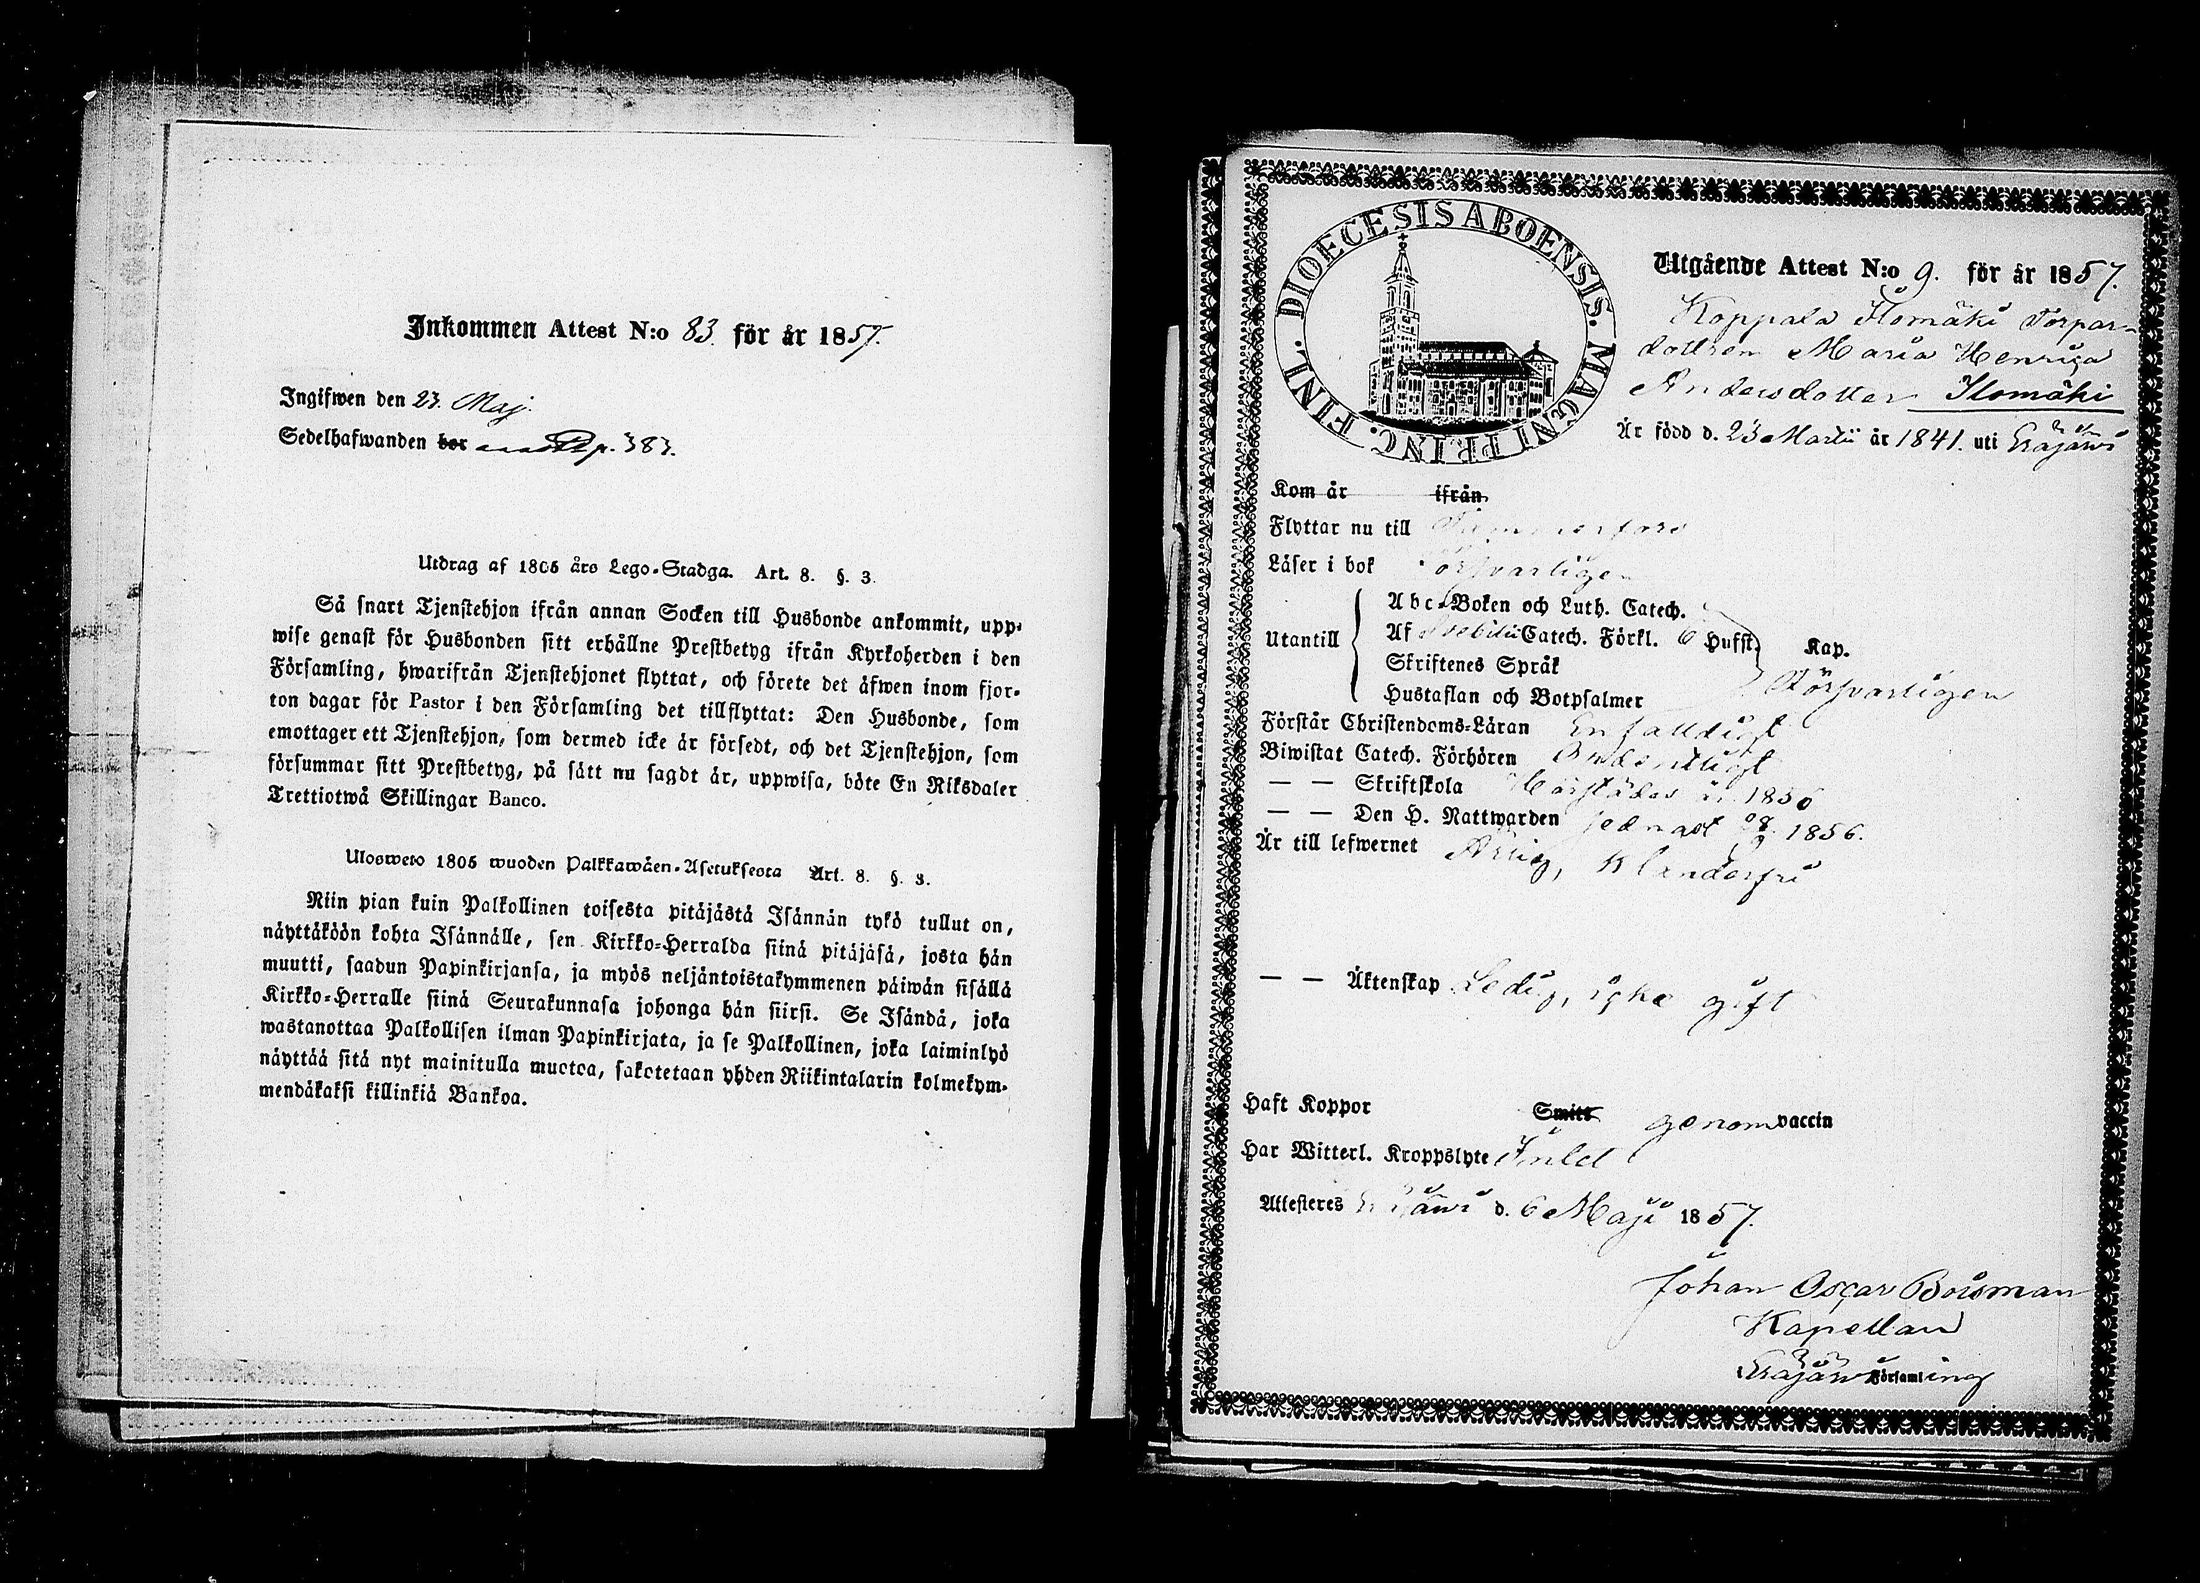 Inkommen Attest N:o 83. för år 1857.
Ingifwen den 23. Maj.
Sedelhafwanden bor p. 383.
Utdrag af 1805 års Lego-Stadga. Art. 8. §. 3.
Så snart Tjenstehjon ifrån annan Socken till Husbonde ankommit, upp-
wise genast för Husbonden sitt erhållne Prestbetyg ifrån Kyrkoherden i den
Församling, hwarifrån Tjenstehjonet flyttat, och förete det äfwen inom fjor-
ton dagar för Pastor i den Församling det tillflyttat: Den Husbonde, som
emottager ett Tjenstehjon, som dermed icke är försedt, och det Tjenstehjon, som
försummar sitt Prestbetyg, på sätt nu sagdt är, uppwisa, böte En Riksdaler
Trettiotwå Skillingar Banco.
Ulosweto 1805 wuoden Palkkawäen-Asetuksesta Art. 8. §. 3.
Niin pian kuin Palkollinen toisesta pitäjästä Isännän tykö tullut on,
näyttäköön kohta Isännälle, sen Kirkko-Herralda siinä pitäjäsä, josta hän
muutti, saadun Papinkirjansa, ja myös neljäntoistakymmenen päiwän sisällä
Kirkko-Herralle siinä Seurakunnasa johonga hän siirsi. Se Isändä, joka
wastanottaa Palkollisen ilman Papinkirjata, ja se Palkollinen, joka laiminlyö
näyttää sitä nyt mainitulla muotoa, sakotetaan yhden Riikintalarin kolmekym-
mendäkaksi killinkiä Bankoa.
DIOECESIS ABOENSIS. MAGNI PRINC. FINL.
Utgående Attest N:o 9. för år 1857.
Koppala Ilomäki Torpar-
dottren Maria Henrica
Andersdotter Ilomäki
Är född d. 23 Martii år 1841. uti Eräjärvi
Kom år ifrån
Flyttar nu till Tammerfors
Läser i bok Försvarligen
Utantill
Abc-Boken och Luth. Catech.
Af Svebilii Catech. Förkl. 6 Hufst. Kap.
Skriftenes Språk
Hustaflan och Botpsalmer Försvarligen
Förstår Christendoms-Läran Enfalldigt
Biwistat Catech. Förhören Ordentligt
— — Skriftskola Härstädes år 1856
— — Den H. Nattwarden sednast 1856.
Är till lefwernet Ärlig, Klanderfri
— — Äktenskap Ledig, icke gift
Haft Koppor Smitt genom vaccin
Har Witterl. Kroppslyte Intet
Attesteres Eräjärvi d. 6 Maji 1857.
Johan Oscar Bousman
Kapellan
Eräjärvi Församling